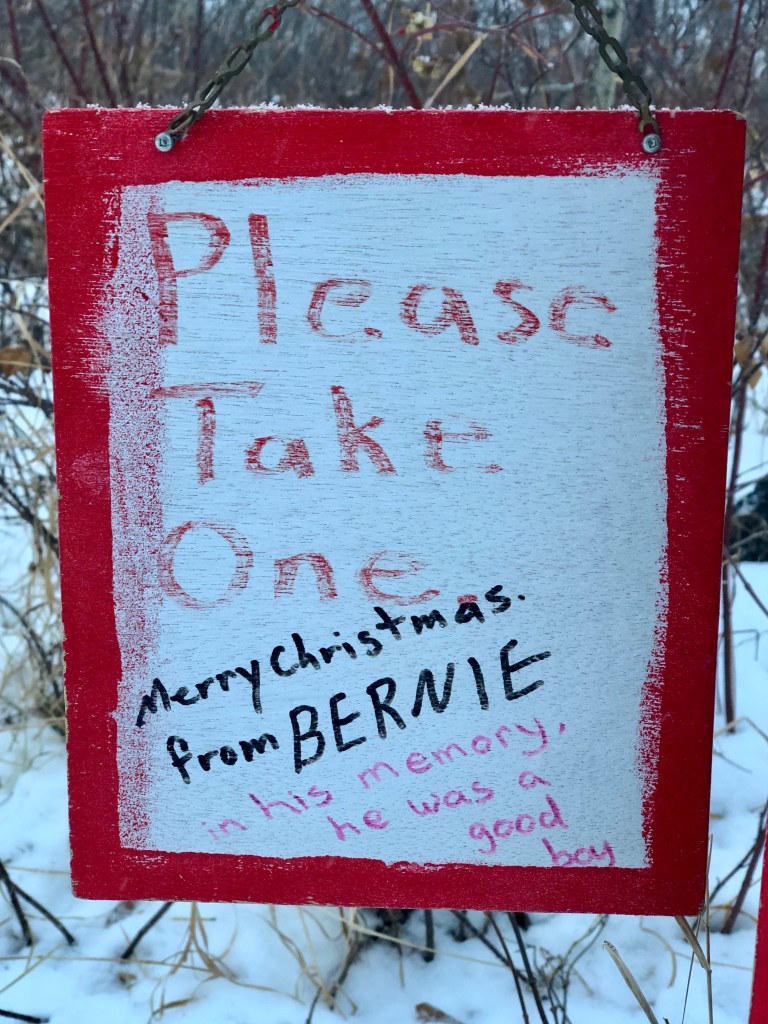 Please
Take
One.
Merry Christmas.
from BERNIE
in his memory,
he was a
good
boy